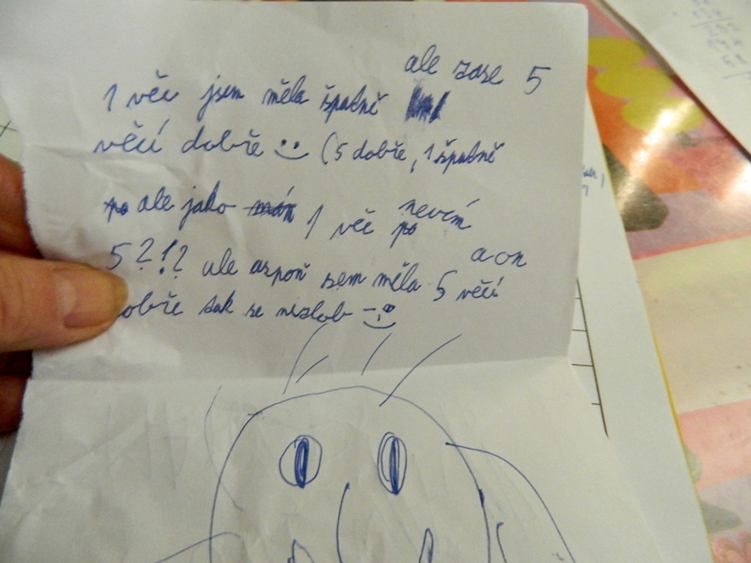 ale zase 5
1 věc jsem měla špatně
věcí dobře (5 dobře, 1 špatně
po ale jako mám 1 věc po nevím
5?!? ale aspoň sem měla 5 věcí a on
dobře tak se nezlob